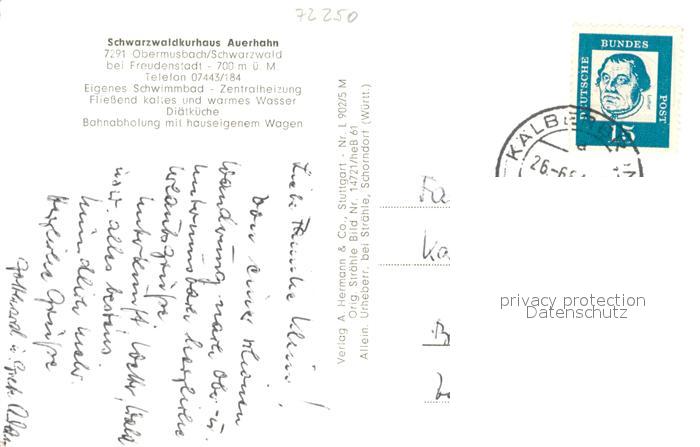 72250
Schwarzwaldkurhaus Auerhahn
7291 Obermusbach/Schwarzwald
bei Freudenstadt - 700 m ü. M.
Telefon 07443/184
Eigenes Schwimmbad - Zentralheizung
Fließend kaltes und warmes Wasser
Diätküche
Bahnabholung mit hauseigenem Wagen
Liebe Familie Klein!
Von einer kleinen
Wanderung nach Ober- u.
Untermusbach herzliche
Urlaubsgrüße
Unterkunft, Wetter, Wald
usw. alles bestens
mündlich mehr.
Herzliche Grüße
Verlag A. Hermann & Co., Stuttgart - Nr. L 902/5 M
Orig. Strähle Bild Nr. 14721/heB 61
Allein. Urheberr. bei Strähle, Schorndorf (Württ.)
DEUTSCHE
BUNDES
POST
Luther
15
26.-6.6
Fa
Ka
privacy protection
Datenschutz